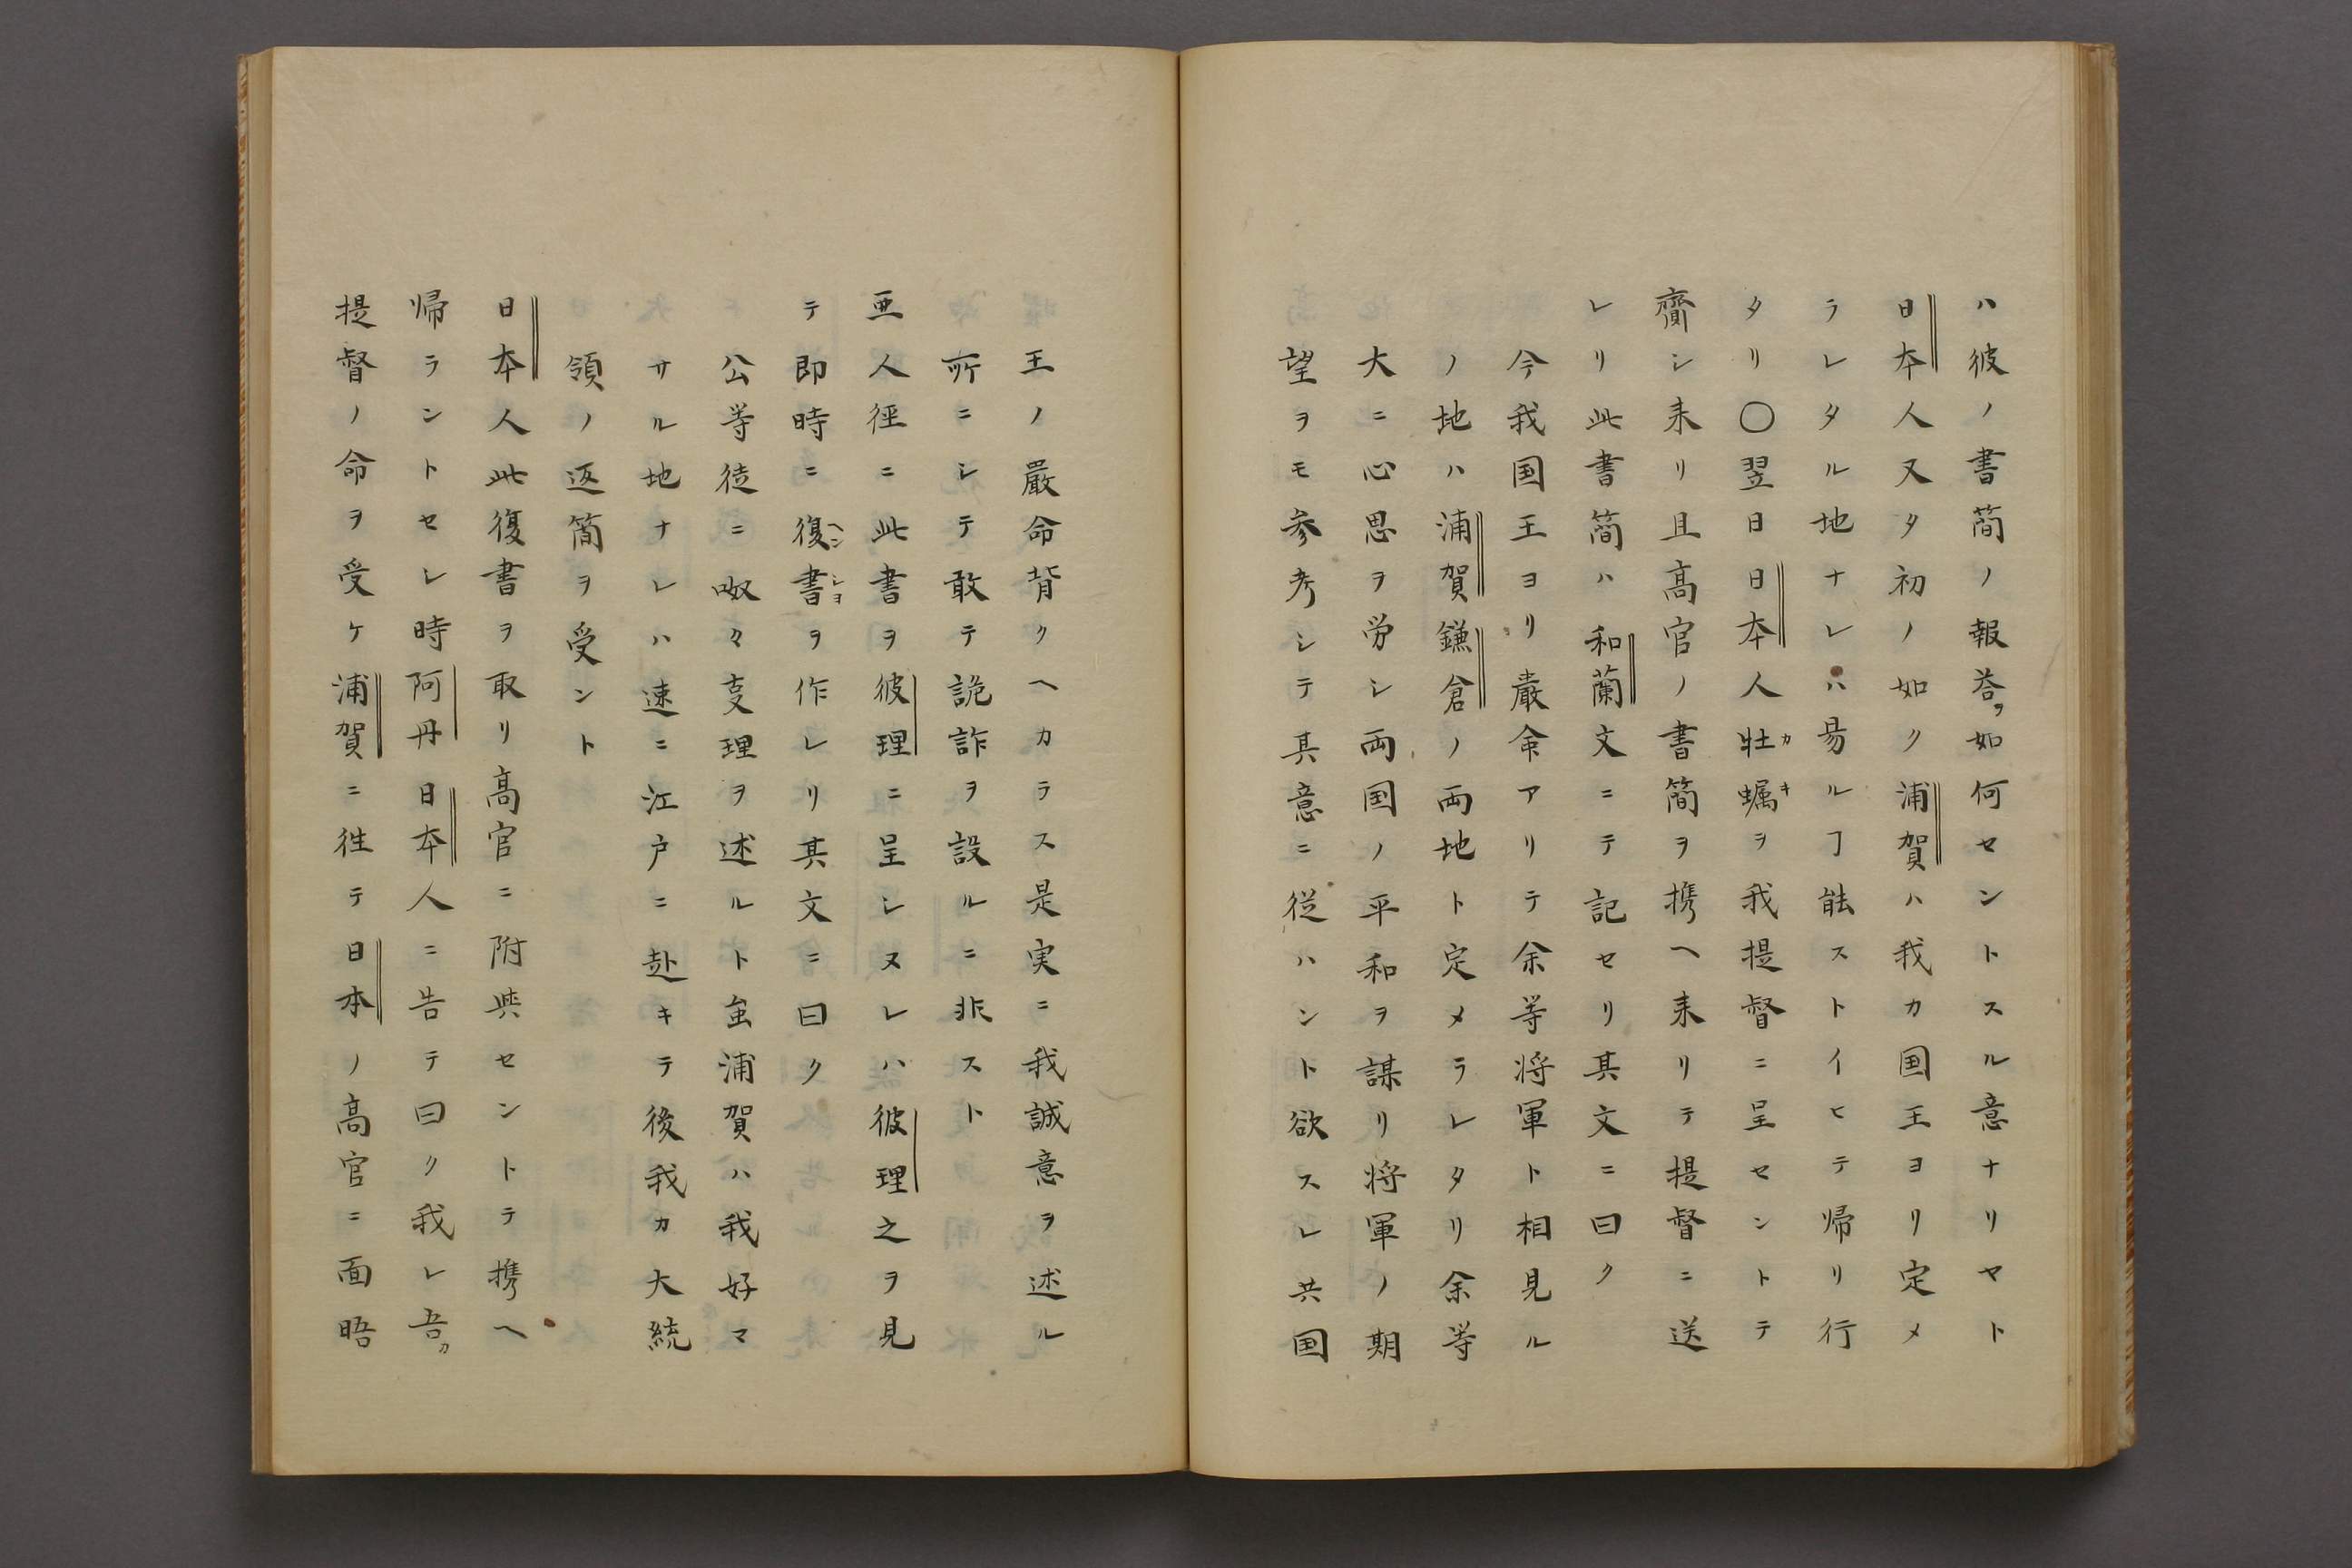 ハ彼ノ書簡ノ報荅ヲ如何セントスル意ナリヤト
日本人又タ初ノ如ク浦賀ハ我カ国王ヨリ定メ
ラレタル地ナレハ昜ルヿ能ストイヒテ帰リ行
タリ〇翌日日本人牡蠣ヲ我提督ニ呈セントテ
齎シ来リ且高官ノ書簡ヲ携ヘ来リテ提督ニ送
レリ此書簡ハ和蘭文ニテ記セリ其文ニ曰ク
今我国王ヨリ厳命アリテ余等将軍ト相見ル
ノ地ハ浦賀鎌倉ノ両地ト定メラレタリ余等
大ニ心思ヲ労シ両国ノ平和ヲ謀リ将軍ノ期
望ヲモ参考シテ其意ニ従ハント欲スレ共国
王ノ厳命背クヘカラス是実ニ我誠意ヲ述ル
所ニシテ敢テ詭詐ヲ設ルニ非スト
亜人径ニ此書ヲ彼理ニ呈シヌレハ彼理之ヲ見
テ即時ニ復書ヲ作レリ其文ニ曰ク
公等徒ニ呶々支理ヲ述ルト虽浦賀ハ我好マ
サル地ナレハ速ニ江戸ニ赴キテ後我カ大統
領ノ返簡ヲ受ント
日本人此復書ヲ取リ高官ニ附與セントテ携ヘ
帰ラントセレ時阿丹日本人ニ告テ曰ク我レ吾カ
提督ノ命ヲ受ケ浦賀ニ往テ日本ノ高官ニ面晤